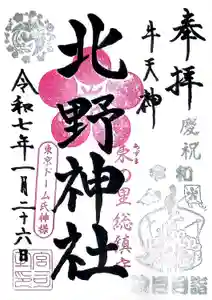 奉拝
牛天神
慶祝
北野神社
東の里総鎮守
令和七年一月二十六日
東京ドーム氏神様